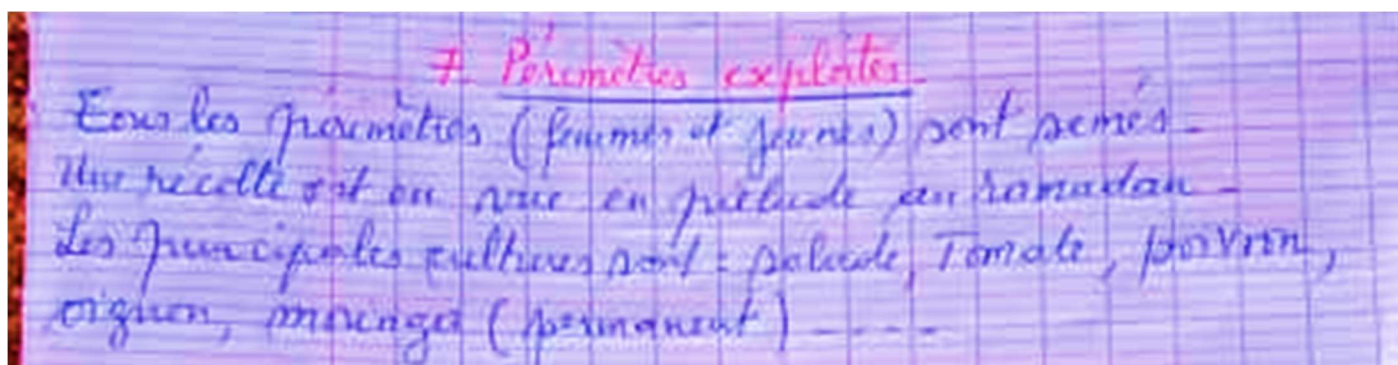 7. Périmètres exploités.
Tous les périmètres (femmes et jeunes) sont semés.
Une récolte est en vue en prélude au ramadan.
Les principales cultures sont : salade, Tomate, poivron,
oignon, moringa (permanent) ----